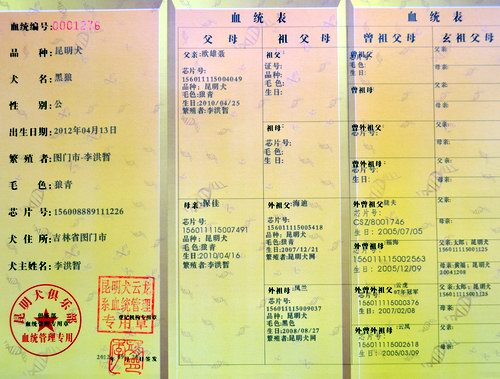 血统编号:0001276
品 种:昆明犬
犬 名:黑狼
性 别:公
出生日期:2012年04月13日
繁 殖 者:图门市-李洪智
毛 色:狼青
芯 片 号:156008889111226
犬 住 所:吉林省图门市
犬主姓名:李洪智
昆明犬俱乐部
血统管理专用章
血统管理专用
昆明犬云龙
系血统管理
专用章
登记机构专用章
血统表
父母 祖父母
父亲:
芯片号:
156011115004049
品种:昆明犬
毛色:狼青
生日:2010/04/25
繁殖者:李洪智
祖父:
证号:
品种:
毛色:
生日:
祖母:
芯片号:
毛色:
生日:
母亲:
芯片号:
156011115007491
品种:昆明犬
毛色:狼青
生日:2010/04/16
繁殖者:李洪智
外祖父:海迪
芯片号:
156011115005418
品种:昆明犬
毛色:狼青
生日:2007/12/21
繁殖者:昆明犬网
外祖母:凤兰
芯片号:
156011115009037
品种:昆明犬
毛色:黑色
生日:2008/08/27
繁殖者:昆明犬网
血统表
曾祖父母 玄祖父母
曾祖父:
芯片号:
毛色:
生日:
曾祖母:
曾外祖父:
芯片号:
生日:
曾外祖母:
芯片号:
生日:
外曾祖父:
芯片号:
CSZ/8001746
生日:2005/07/05
外曾祖母:
芯片号:
156011115002563
生日:2005/12/09
外曾外祖父:云虎
07年冠军
156011115000376
生日:2007/02/08
外曾外祖母:云凤
芯片号:
156011115002618
生日:2005/03/09
父亲:
母亲:
父亲:
母亲:
父亲:
母亲:
父亲:
母亲:
父亲:
母亲:
父亲:太郎:昆明犬
20041208
父亲:
母亲:
父亲:
母亲: